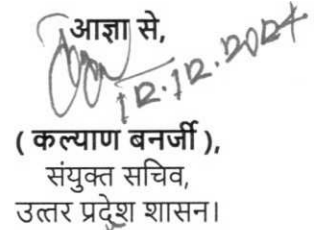 आज्ञा से,
12.12.2024
( कल्याण बनर्जी ),
संयुक्त सचिव,
उत्तर प्रदेश शासन।